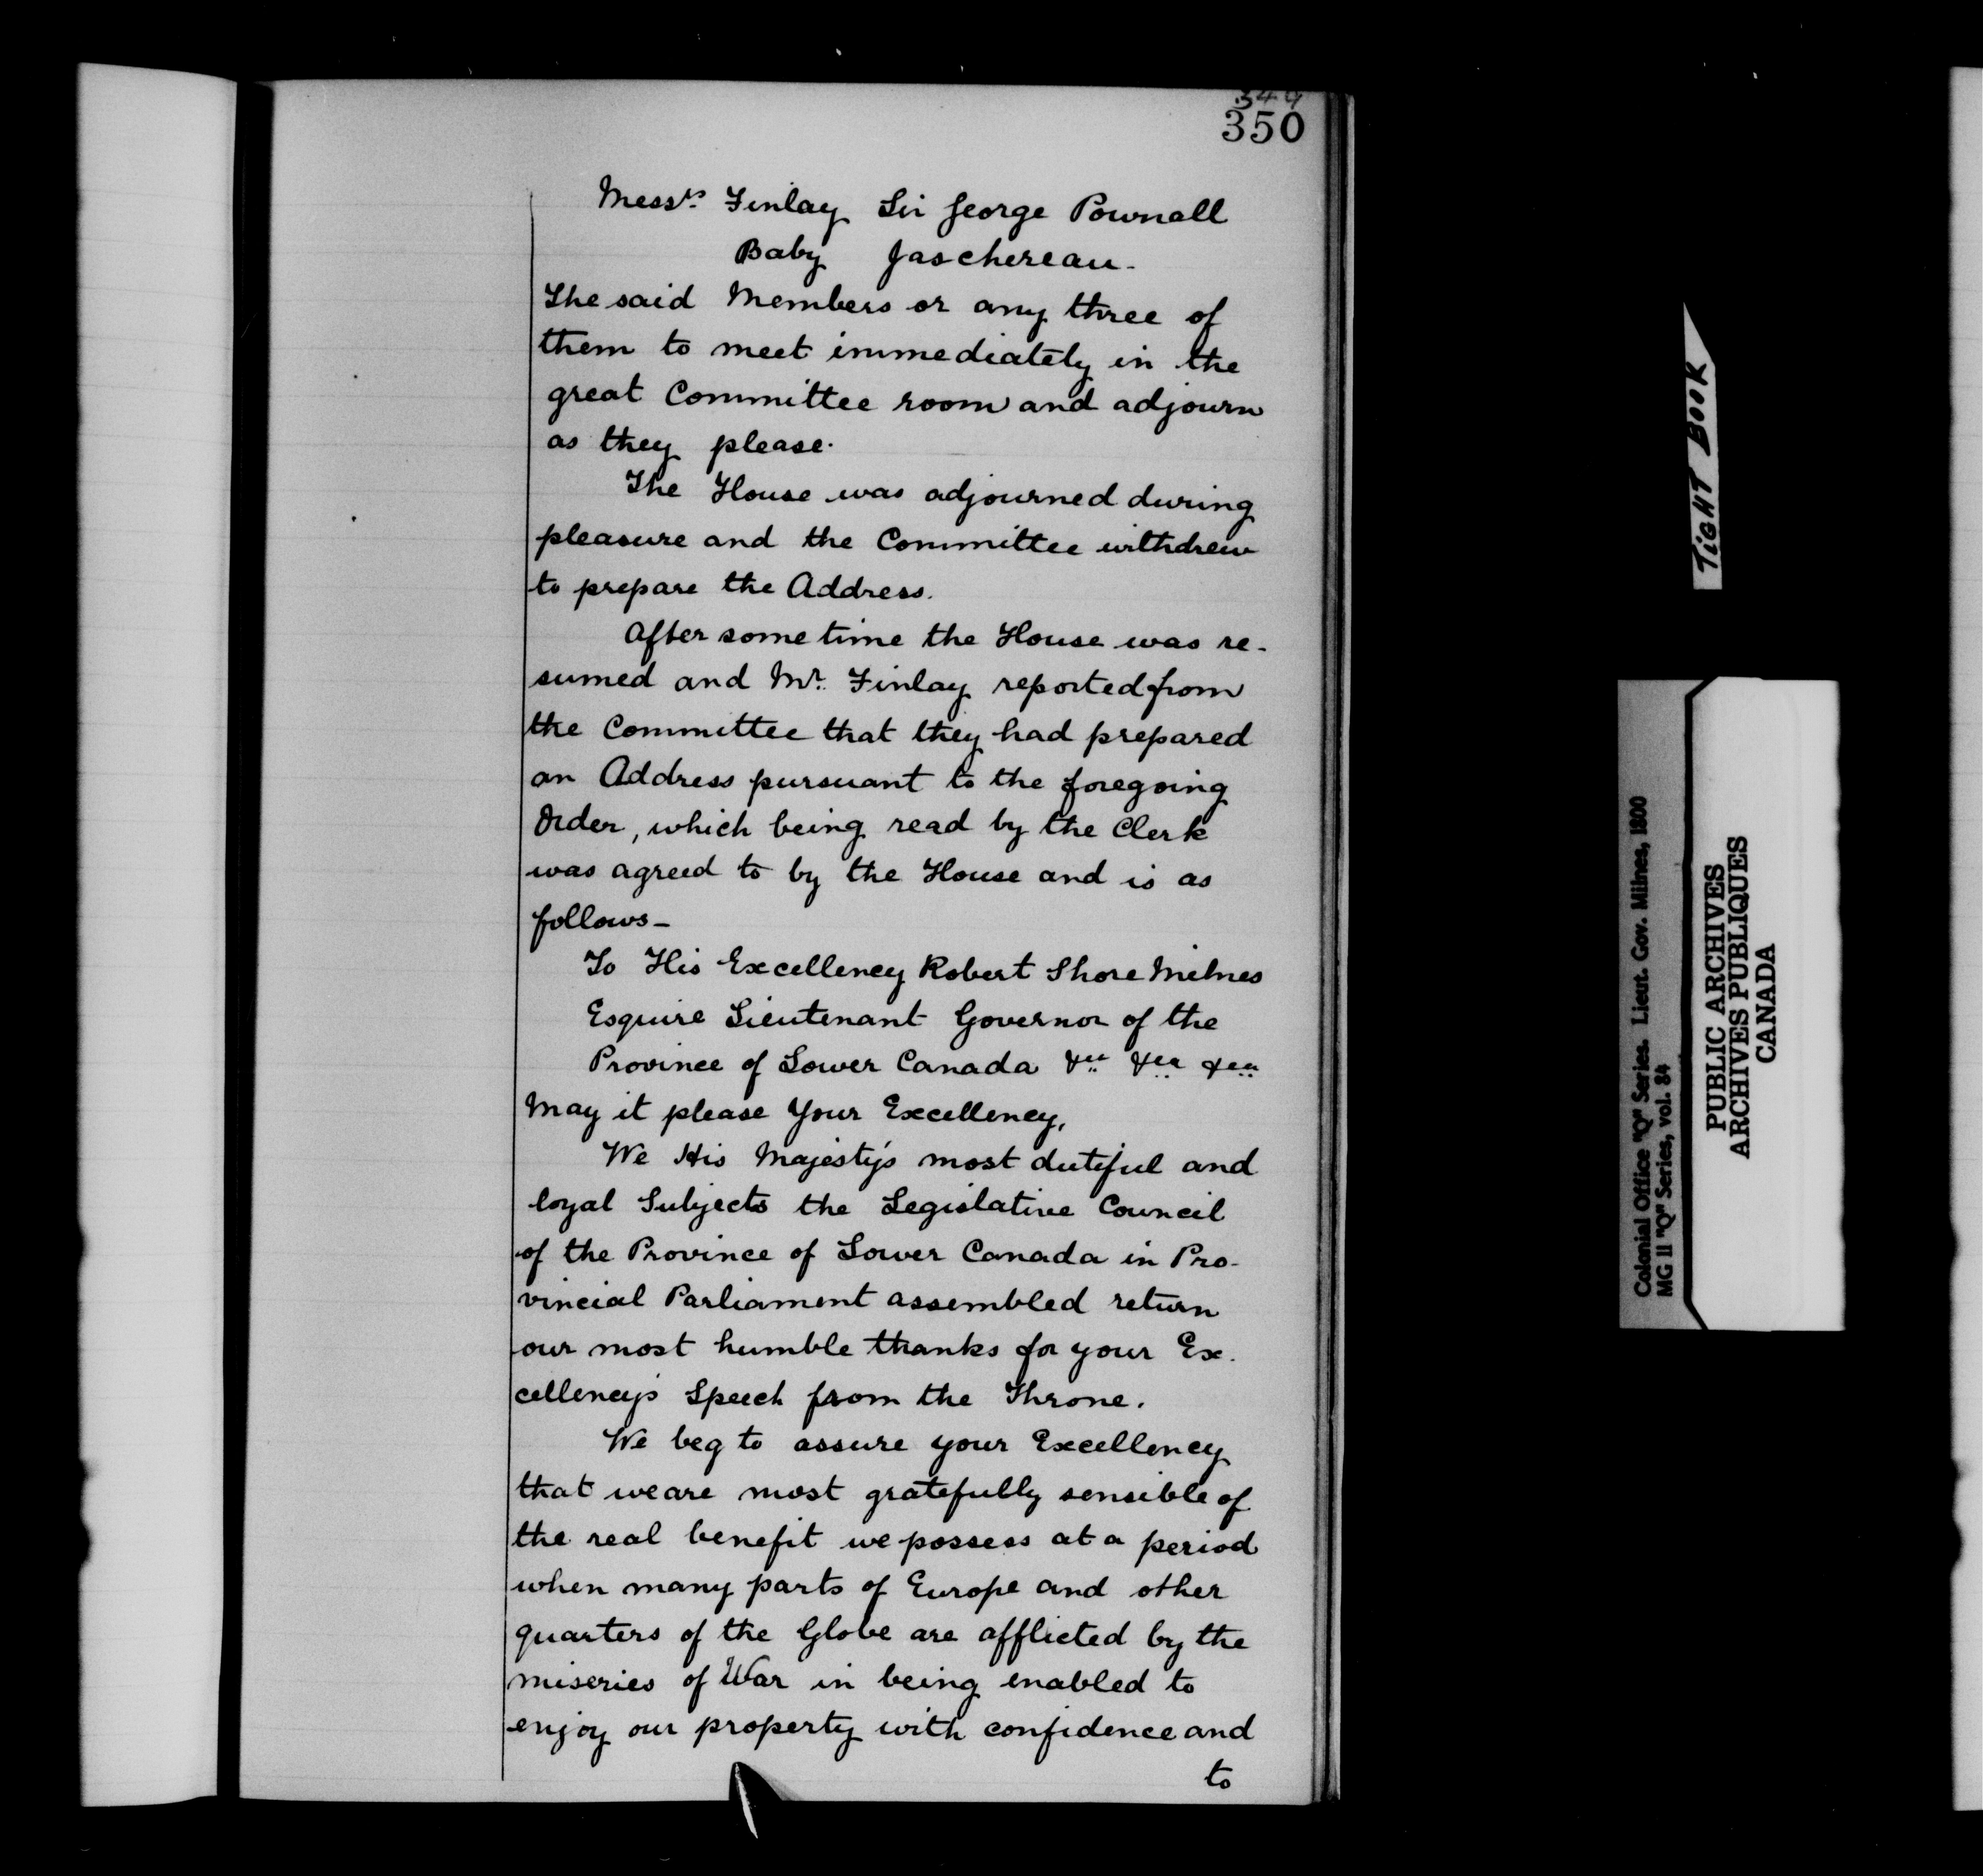 349
350
Messrs. Finlay Sir George Pownall
Baby Taschereau.
The said Members or any three of
them to meet immediately in the
great Committee room and adjourn
as they please.
The House was adjourned during
pleasure and the Committee withdrew
to prepare the Address.
After some time the House was re-
sumed and Mr. Finlay reported from
the Committee that they had prepared
an Address pursuant to the foregoing
Order, which being read by the Clerk
was agreed to by the House and is as
follows-
To His Excellency Robert Shore Milnes
Esquire Lieutenant Governor of the
Province of Lower Canada &ca &ca &ca
May it please Your Excellency,
We His Majesty's most dutiful and
loyal Subjects the Legislative Council
of the Province of Lower Canada in Pro-
vincial Parliament assembled return
our most humble thanks for your Ex-
cellency's Speech from the Throne.
We beg to assure your Excellency
that we are most gratefully sensible of
the real benefit we possess at a period
when many parts of Europe and other
quarters of the Globe are afflicted by the
miseries of War in being enabled to
enjoy our property with confidence and
to
TIGHT BOOK
Colonial Office "Q" Series. Lieut. Gov. Milnes, 1800
MG 11 "Q" Series, vol. 84
PUBLIC ARCHIVES
ARCHIVES PUBLIQUES
CANADA